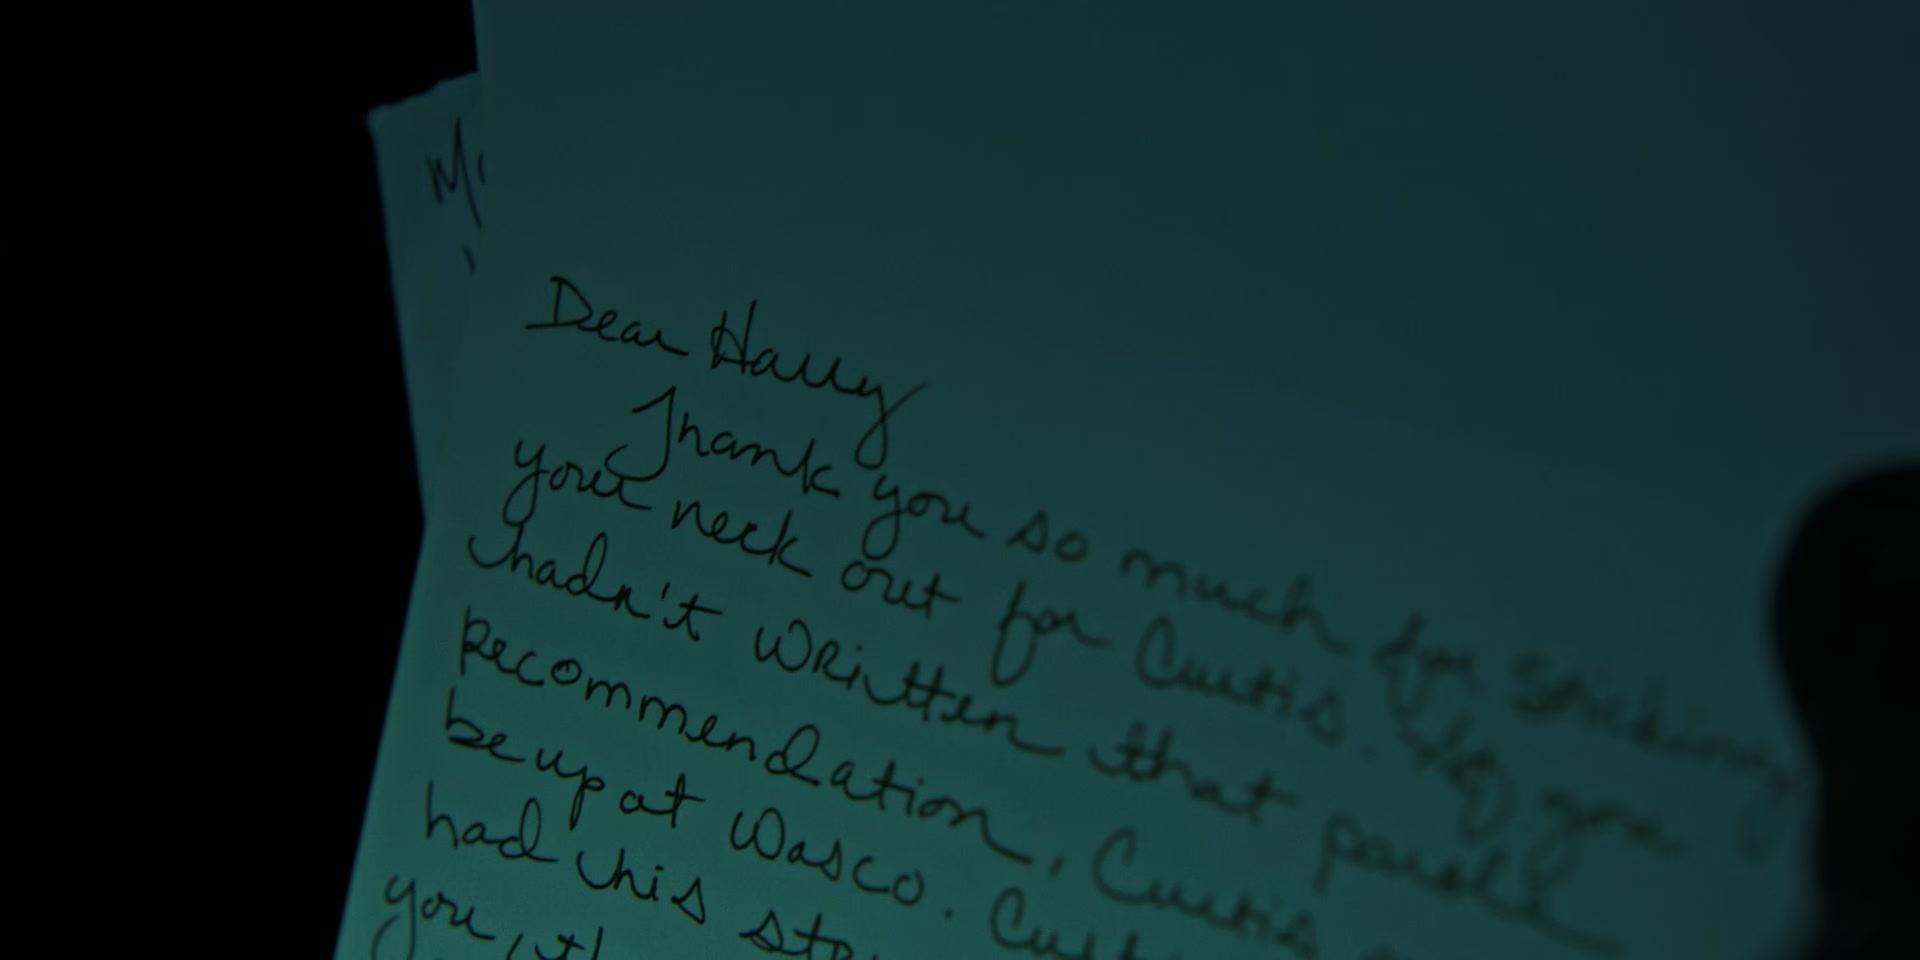 M
Dear Harry
Thank you so much for sticking
your neck out for Curtis. If you
hadn't written that parole
recommendation, Curtis
be up at Wasco.
had his
you,